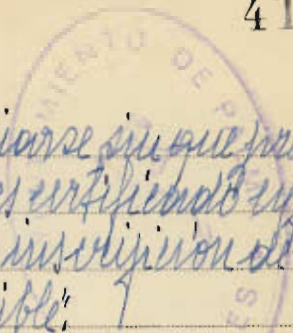 41
MIENTO DE P
iarse sin que pre
certificado en
inscripcion de
ible"
ES